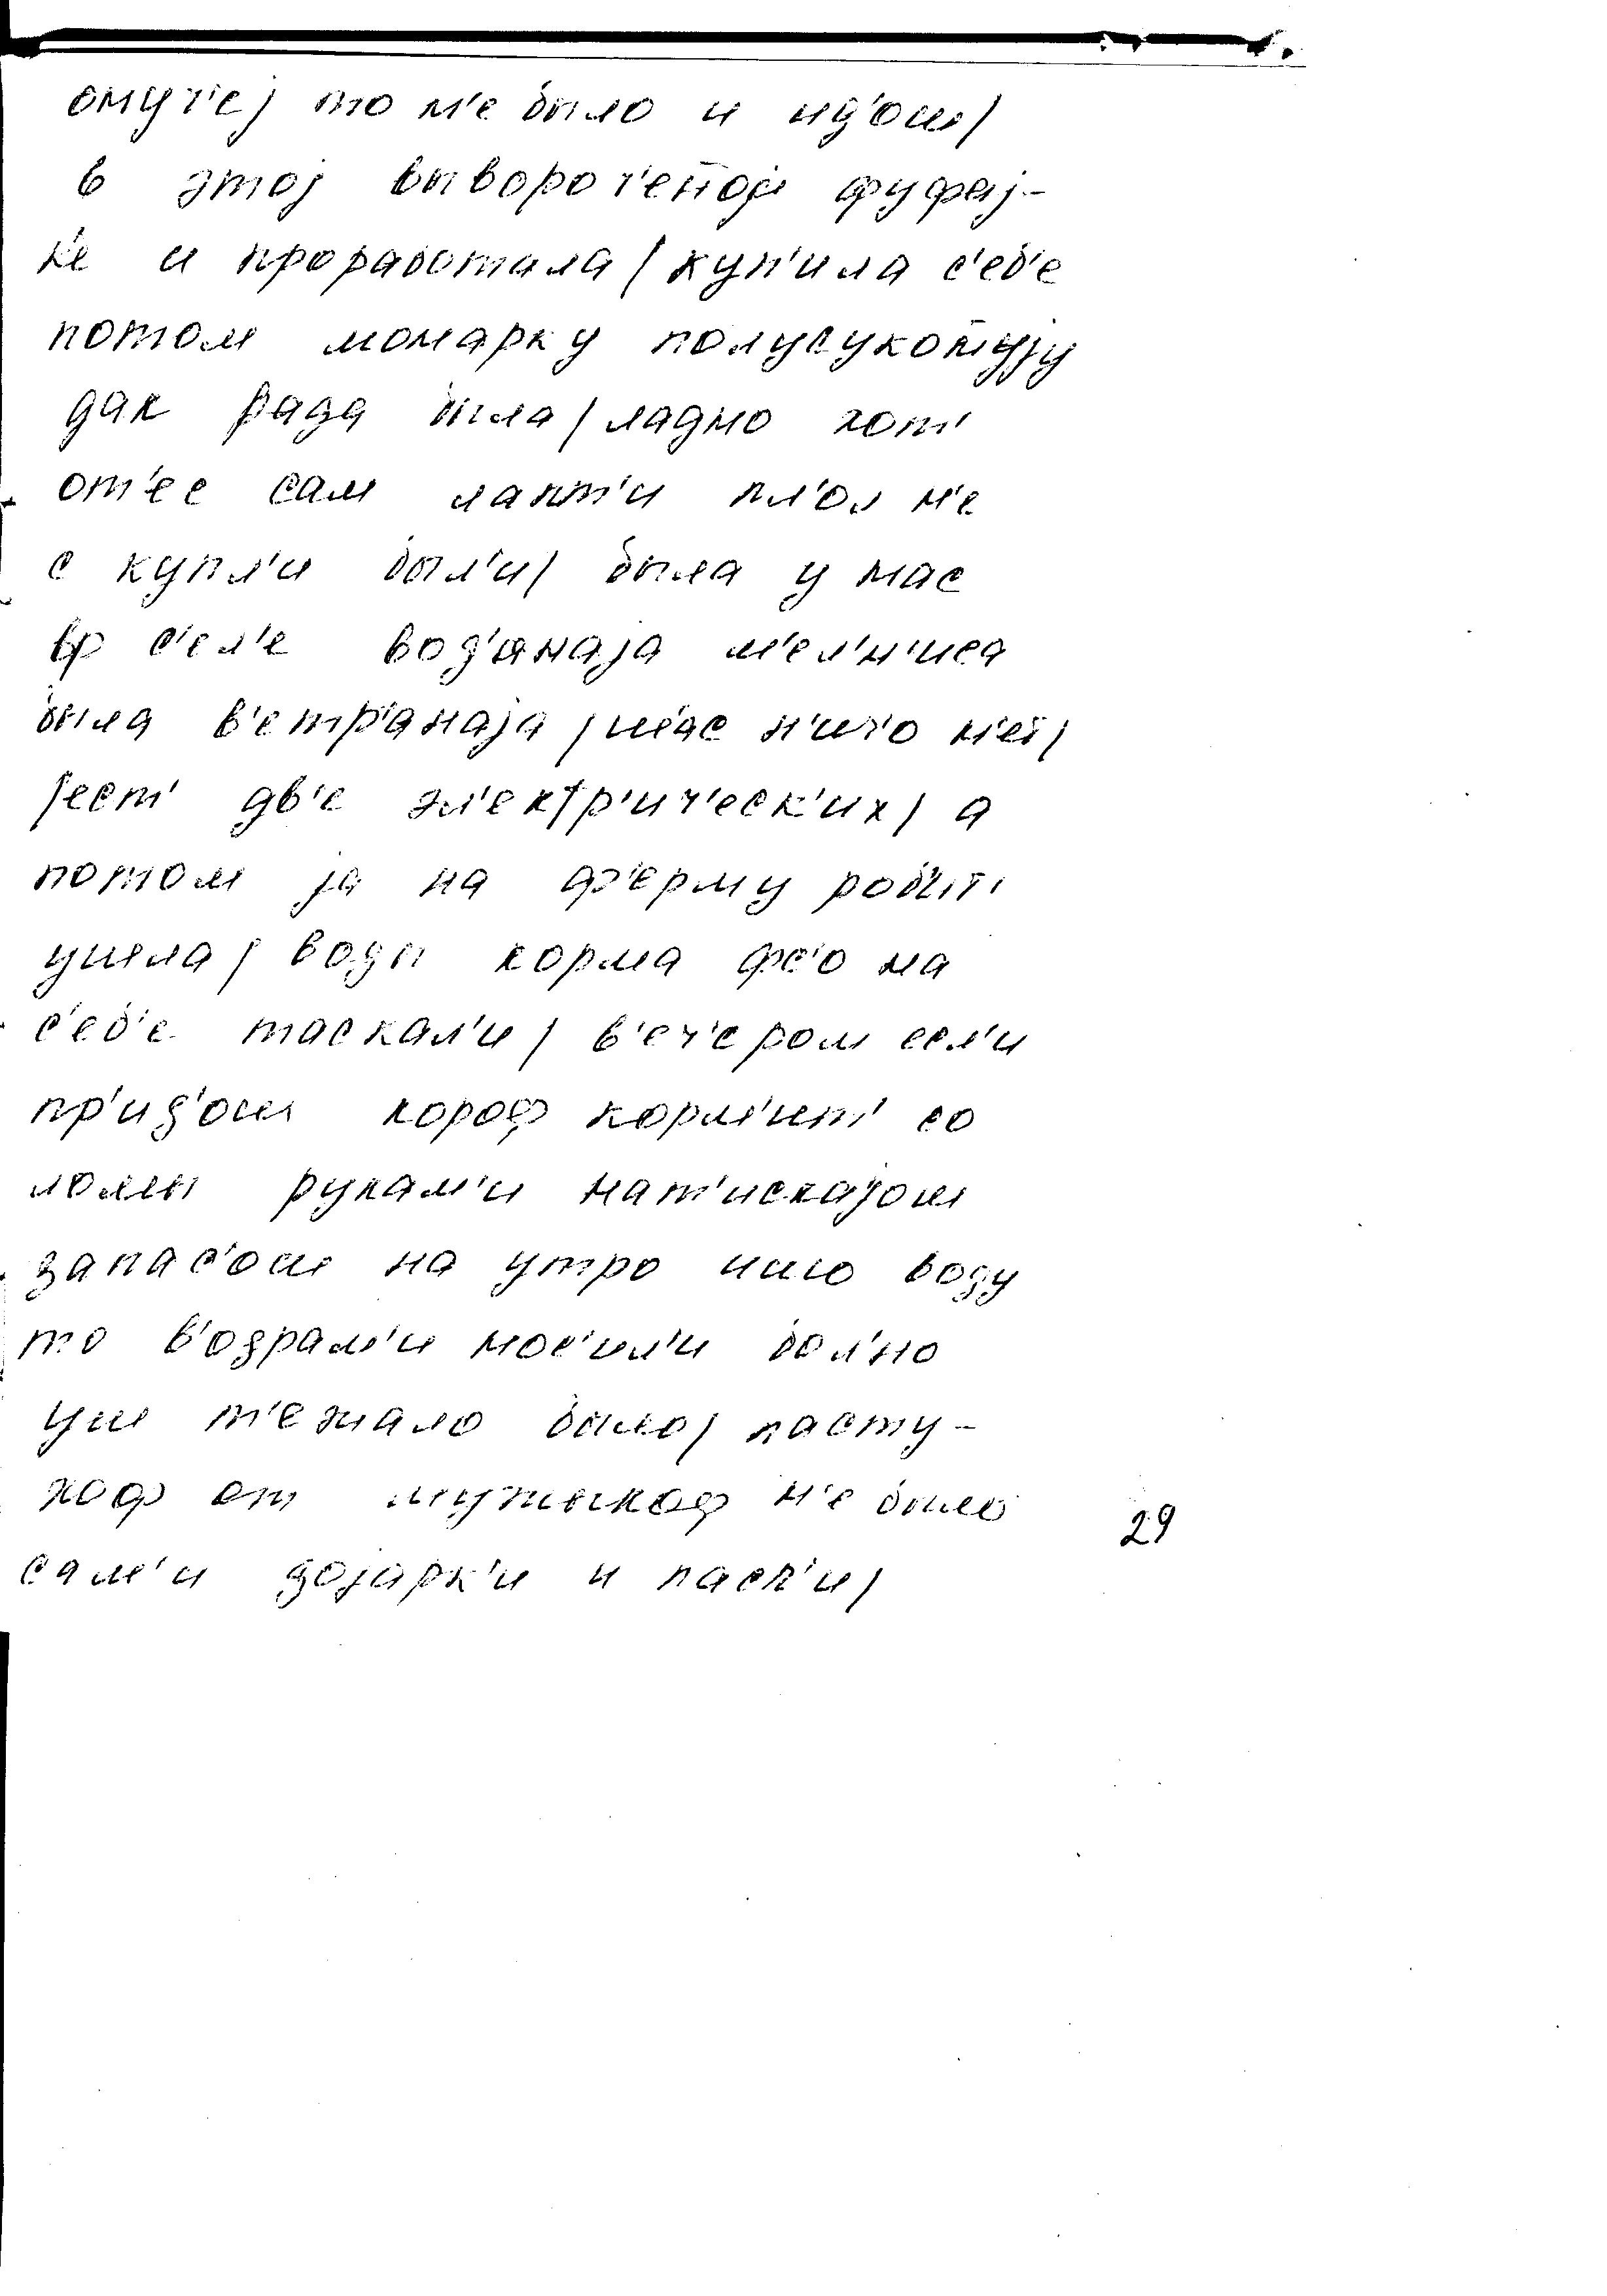 омуч'еј то н'е было и ид'ош/
в этој вывороч'еноји фуфај-
к'е и проработала/куп'ила с'еб'е
потом монарку полусукон̄ују
дак рада была/ладно хот'
от'ес сам лапт'и пл'ол н'е
с купл'и был'и/ была у нас
ф с'ел'е вод'анаја м'ел'н'иса
была в'етр'анаја/шас н'ич'о н'ет/
јест' дв'е эл'ектр'ич'еск'их/ а
потом ја на ф'ерму роб'ит'
ушла/ воды корма фс'о на
с'еб'е таскал'и/ в'еч'ером есл'и
пр'ид'ош короф корм'ит' со
ломы рукам'и нат'искајош
запас'ош на утро ишо воду
то в'одрам'и нос'ил'и бол'но
уш т'ежало было/ пасту-
хоф от мужыкоф н'е было
сам'и дојарк'и и пасл'и/
29